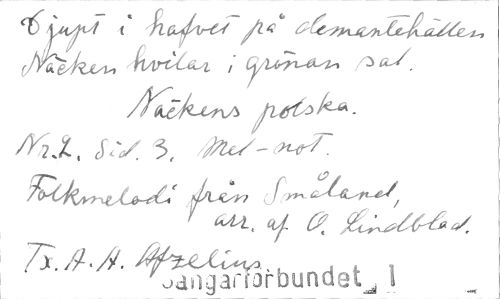 Djupt i hafvet på demantehällen
Näcken hvilar i grönan sal.
Näckens polska.
Nr. 2. Sid. 3. Mel-not.
Folkmelodi från Småland,
arr. af O. Lindblad.
Tx. A. A. Afzelius
Sångarförbundet 1